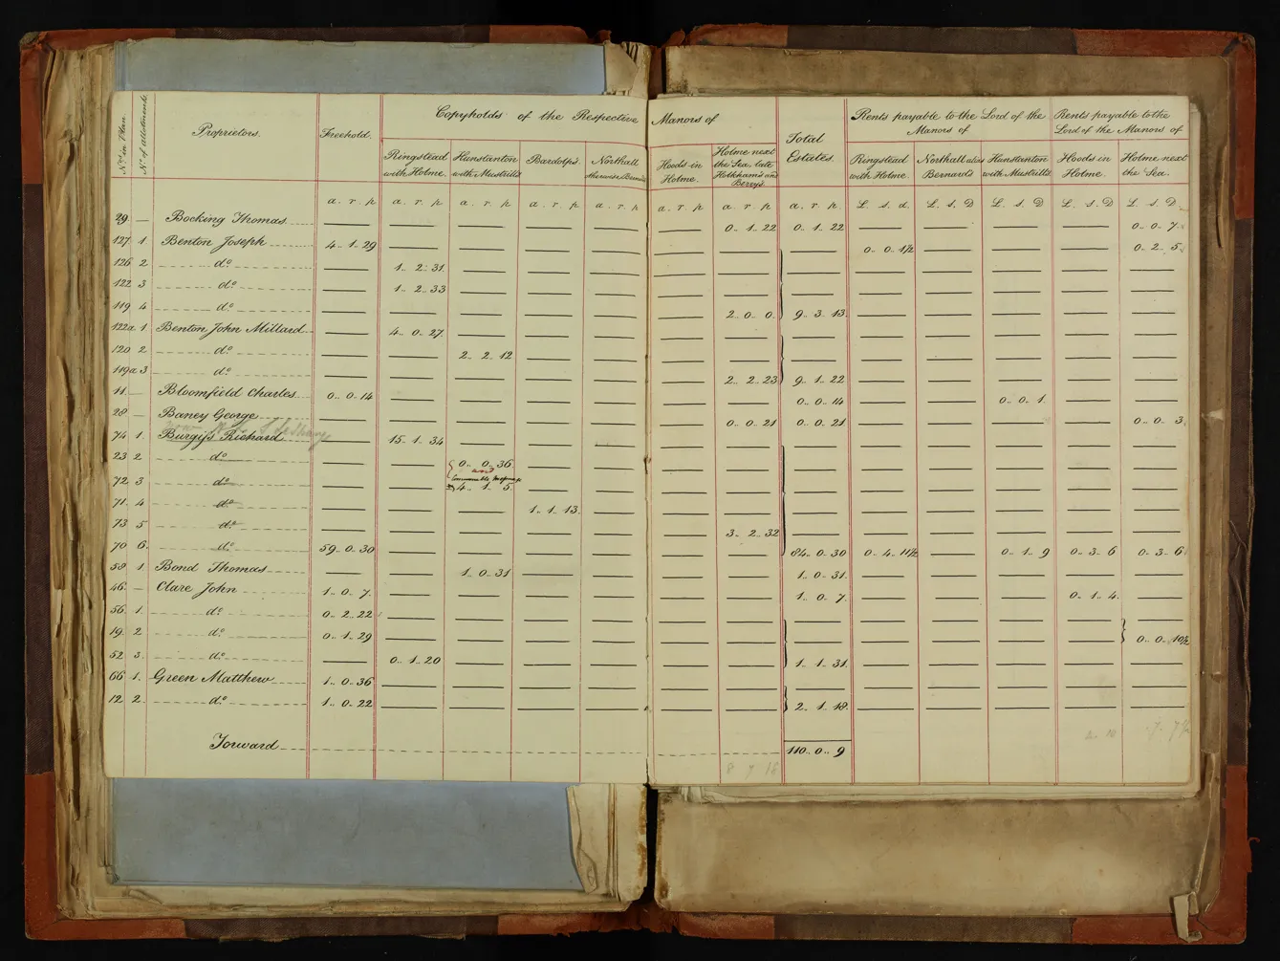 Nos. in Plan. No. of allotments Proprietors. Freehold. Copyholds of the Respective Manors of Total Estates. Rents payable to the Lord of the Manors of Rents payable to the Lord of the Manors of
Ringstead with Holme. Hunstanton with Mustrells Bardolps. Northall otherwise Bernards Hoods in Holme. Holme next the Sea, late Holkham's and Berry's Ringstead with Holme. Northall alias Bernards Hunstanton with Mustrells Hoods in Holme. Holme next the Sea.
a. r. p a. r. p a. r. p a. r. p a. r. p a. r. p a. r. p a. r. p L. s. d. L. s. D L. s. D L. s. D L. s. D.
29. — Bocking Thomas — — — — — — 0.. 1.. 22 0.. 1.. 22 — — — — 0.. 0.. 7.
127 1 Benton Joseph 4.. 1.. 29 — — — — — — — 0.. 0.. 1/2 — — — 0.. 2.. 5.
126 2 do. — 1.. 2.. 31. — — — — — — — — — — —
122 3 do. — 1.. 2.. 33 — — — — — — — — — — —
119 4 do. — — — — — — 2.. 0.. 0. 9.. 3.. 13. — — — — —
122a 1 Benton John Millard — 4.. 0.. 27. — — — — — — — — — — —
120 2 do. — — 2.. 2.. 12 — — — — — — — — — —
119a 3 do. — — — — — — 2.. 2.. 23 9.. 1.. 22 — — — — —
11 — Bloomfield Charles 0.. 0.. 14 — — — — — — 0.. 0.. 14 — — 0.. 0.. 1. — —
28 — Baney George — — — — — — 0.. 0.. 21 0.. 0.. 21 — — — — 0.. 0.. 3.
74 1. Burgiss Richard 15.. 1.. 34 — — — — — — — — — — — —
23 2 do. — — 0.. 0.. 36. — — — — — — — — — —
and
72 3 do. — — 4.. 1.. 5. — — — — — — — — — —
71 4 do. — — — 1.. 1.. 13. — — — — — — — — —
73 5 do. — — — — — — 3.. 2.. 32 — — — — — —
70 6. do. 59.. 0.. 30 — — — — — — 84.. 0.. 30 0.. 4.. 11/2 — 0.. 1.. 9 0.. 3.. 6 0.. 3.. 6
58 1. Bond Thomas — — 1.. 0.. 31 — — — — 1.. 0.. 31. — — — — —
46 — Clare John 1.. 0.. 7. — — — — — — 1.. 0.. 7. — — — 0.. 1.. 4. —
56 1. do. 0.. 2.. 22 — — — — — — — — — — — —
19. 2 do. 0.. 1.. 29 — — — — — — — — — — — 0.. 0.. 10 1/2
52 3. do. — 0.. 1.. 20 — — — — — 1.. 1.. 31. — — — — —
66 1. Green Matthew 1.. 0.. 36 — — — — — — — — — — — —
12 2. do. 1.. 0.. 22 — — — — — — 2.. 1.. 18. — — — — —
Forward 110.. 0.. 9
8 7 16